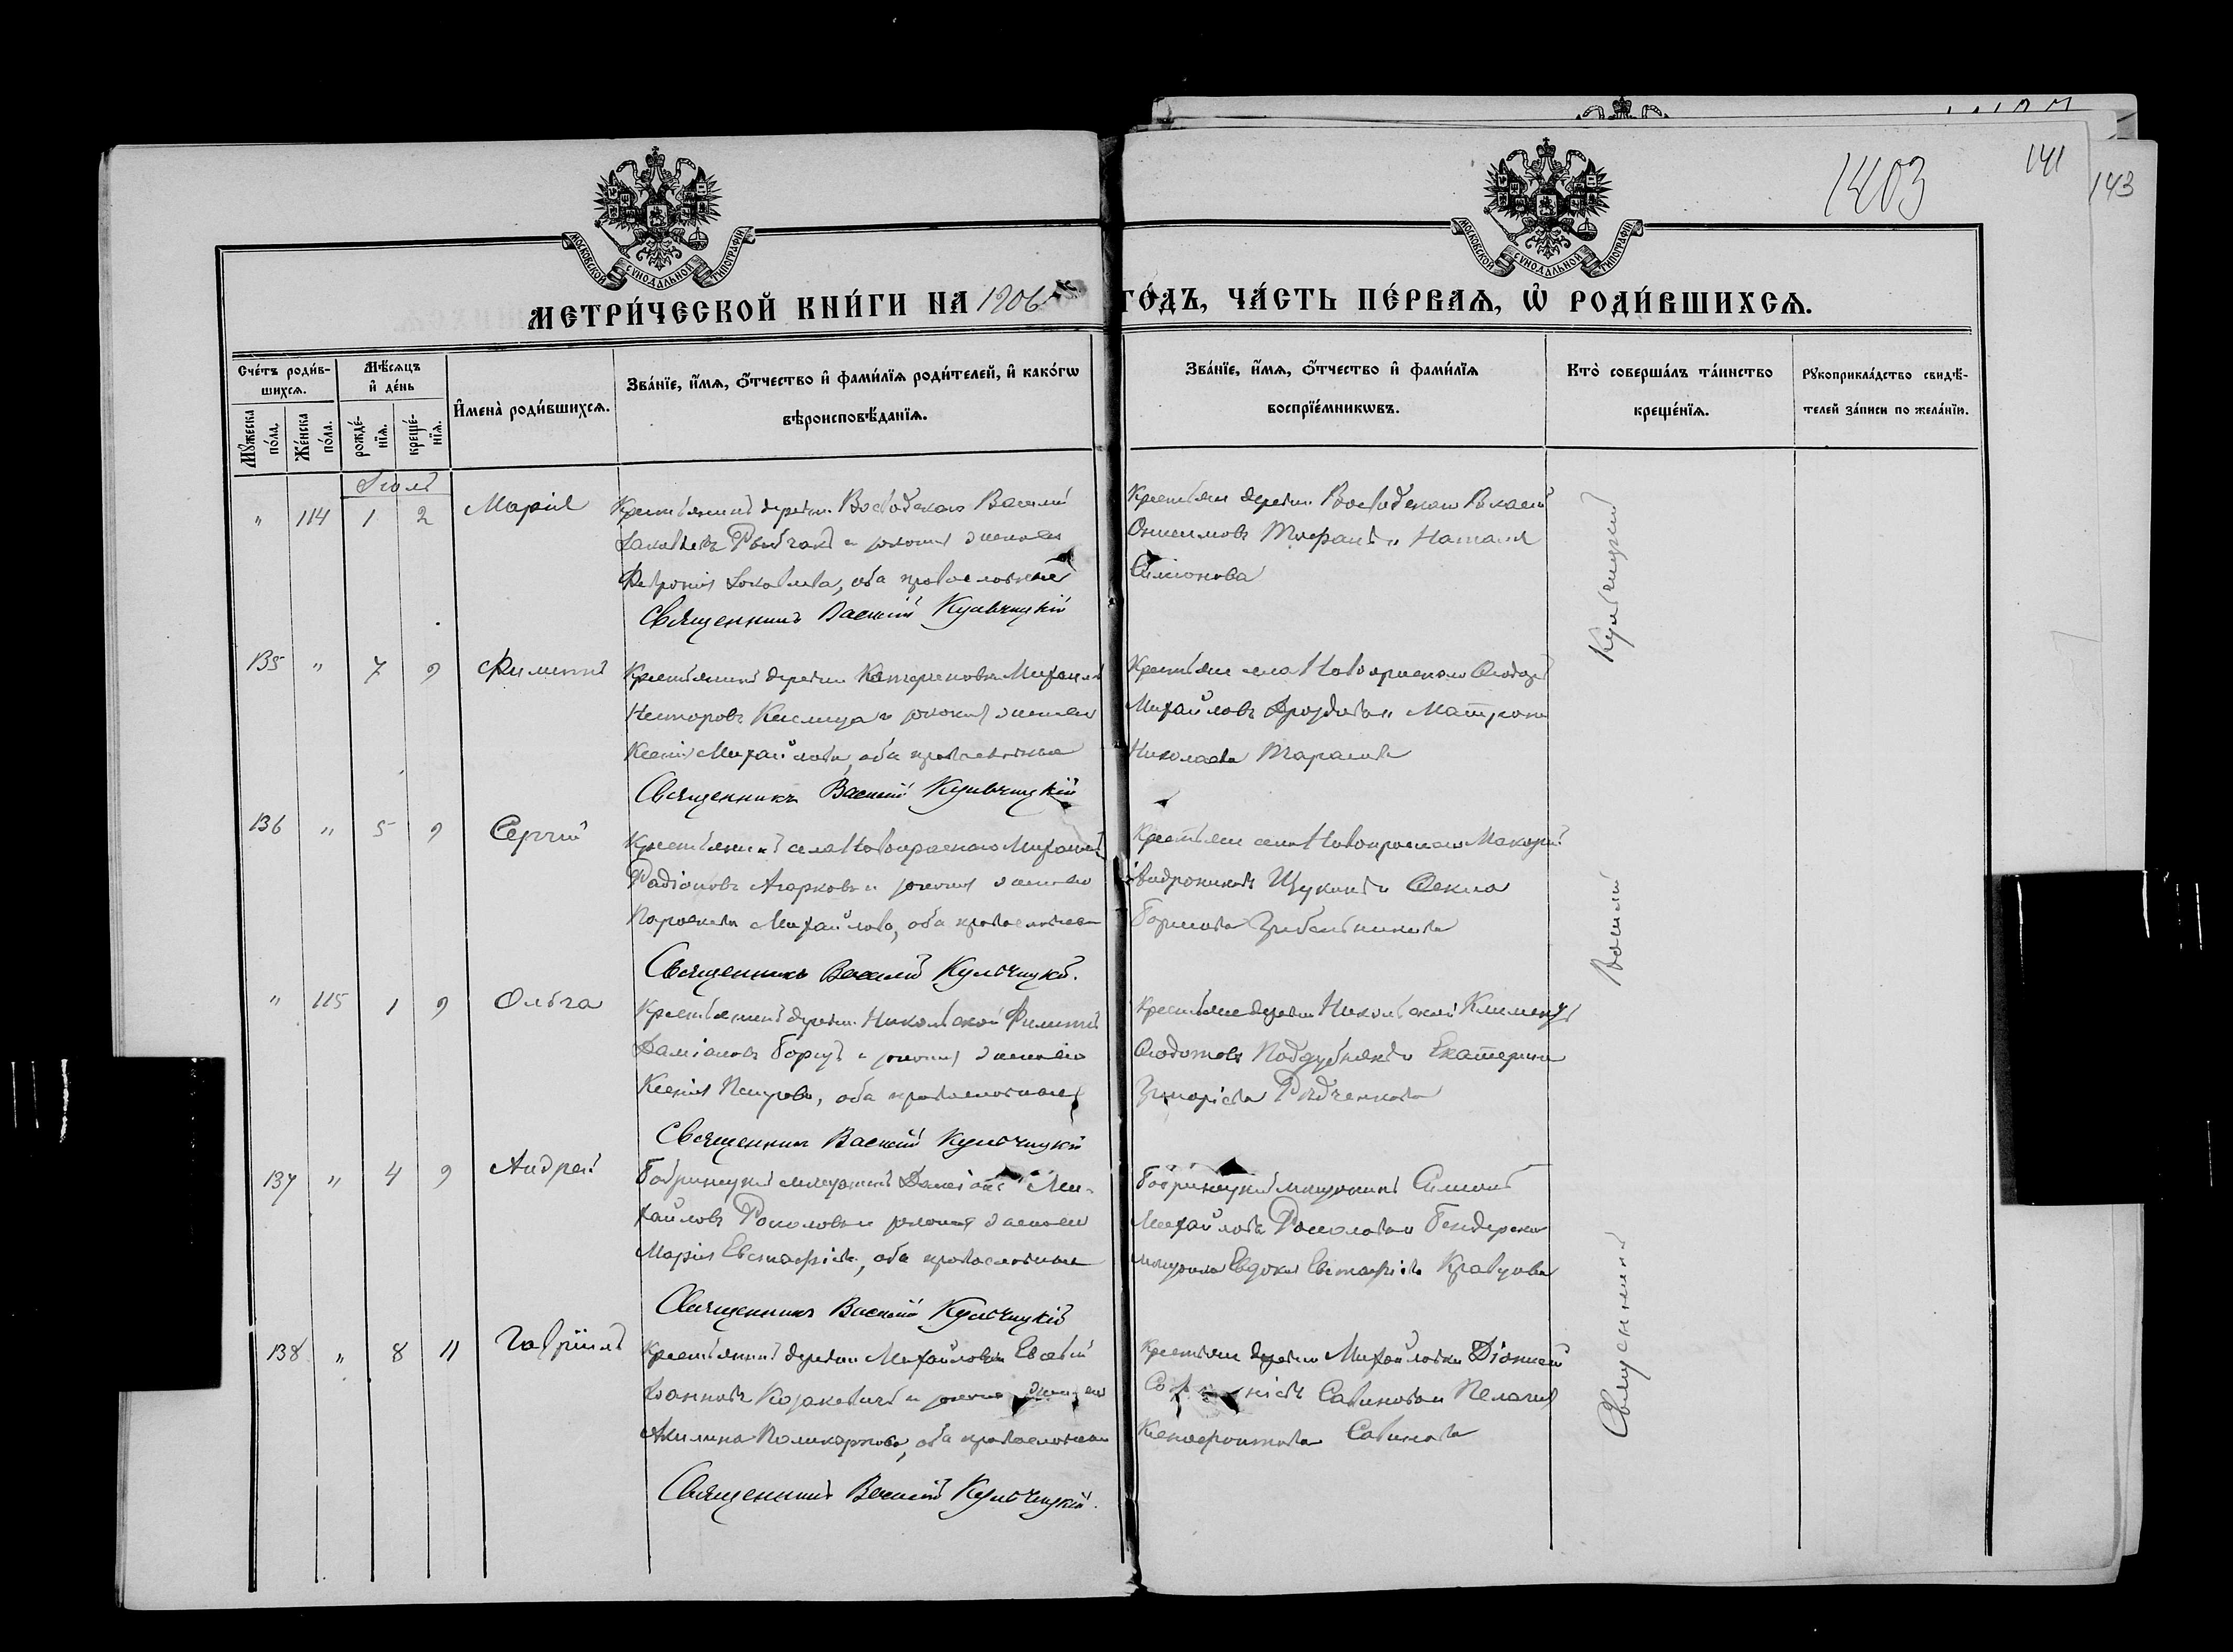 1403
141
143
МОСКОВСКОЙ СУНОДАЛЬНОЙ ТИПОГРАФІИ
МОСКОВСКОЙ СУНОДАЛЬНОЙ ТИПОГРАФІИ
МЕТРИ́ЧЕСКОЙ КНИ́ГИ НА 1906 ГО́ДЪ, ЧА́СТЬ ПЕ́РВАѦ, Ѡ҆ РОДИ́ВШИХСѦ.
Сче́тъ роди́в-
шихсѧ.
Мꙋ́жеска по́ла.
Же́нска по́ла.
Мѣ́сѧцъ
и҆ де́нь
рожде́-
нїѧ.
креще́-
нїѧ.
И҆мена̀ роди́вшихсѧ.
Зва́нїе, и҆́мѧ, ѻ҆́тчество и҆ фами́лїѧ роди́телей, и҆ како́гѡ
вѣроисповѣ́данїѧ.
Зва́нїе, и҆́мѧ, ѻ҆́тчество и҆ фами́лїѧ
воспрїе́мникѡвъ.
Кто̀ соверша́лъ та́инство
креще́нїѧ.
Рꙋкоприкла́дство свидѣ́-
телей за́писи по жела́нїю.
Іюль
" 114 1 2 Марія
Крестьянинъ деревни Василій
Іаковлевъ Рыбчакъ и законная жена его
Февронія Іаковлева, оба православные
Священникъ Василій Кульчицкій
Крестьяне деревни
Онисимовъ и Наталія
Симіонова
135 " 7 9 Филиппъ
Крестьянинъ деревни Катериновки Михаилъ
Несторовъ Кислица и законная жена его
Ксенія Михайлова, оба православные
Священникъ Василій Кульчицкій
Крестьяне села Новокрасного Ѳеодоръ
Михайловъ Дроздовъ и Матрона
Николаева
136 " 5 9 Сергій
Крестьянинъ села Новокрасного Михаилъ
Радіоновъ Агарковъ и законная жена его
Параскева Михайлова, оба православные
Священникъ Василій Кульчицкій.
Крестьяне села Новокрасного Макарій
Андрониковъ Щукинъ и Ѳекла
" 115 1 9 Ольга
Крестьянинъ деревни Никольской Филиппъ
Даміановъ Борщъ и законная жена его
Ксенія Петрова, оба православные
Священникъ Василій Кульчицкій
Крестьяне деревни Никольской Климентъ
Ѳеодотовъ Поддубнякъ и Екатерина
Григоріева Рядченкова
137 " 4 9 Андрей
Бобринецкій мещанинъ Даміанъ Ми-
хайловъ и законная жена его
Марія Евстафіева, оба православные
Священникъ Василій Кульчицкій
Бобринецкій мещанинъ Симеонъ
Михайловъ и Бендерская
мещанка Евдокія Евстафіева Кравцова
138 " 8 11 Гавріилъ
Крестьянинъ деревни Михайловки Евсевій
Іоанновъ Козакевичъ и законная жена его
Акилина Поликарпова, оба православные
Священникъ Василій Кульчицкій.
Крестьяне деревни Михайловки Діонисій
Савиновъ и Пелагія
Ксенофонтова Савинова
Священникъ Василій Кульчицкій